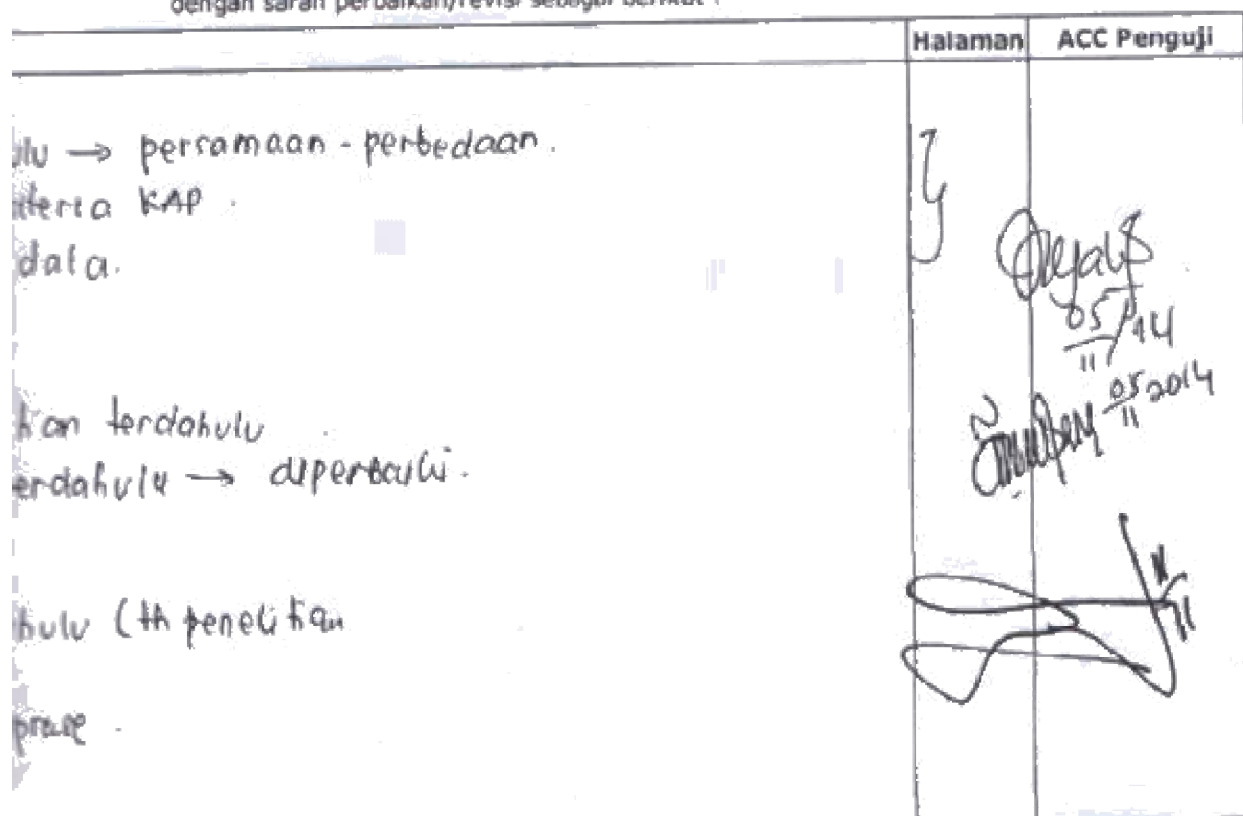 dengan saran perbaikan/revisi sebagai berikut :
Halaman ACC Penguji
ulu → persamaan - perbedaan.
iteria KAP.
data.
05/11/14
05/11 2014
terdahulu
erdahulu → diperbaiki.
hulu (th penelitian
11/11